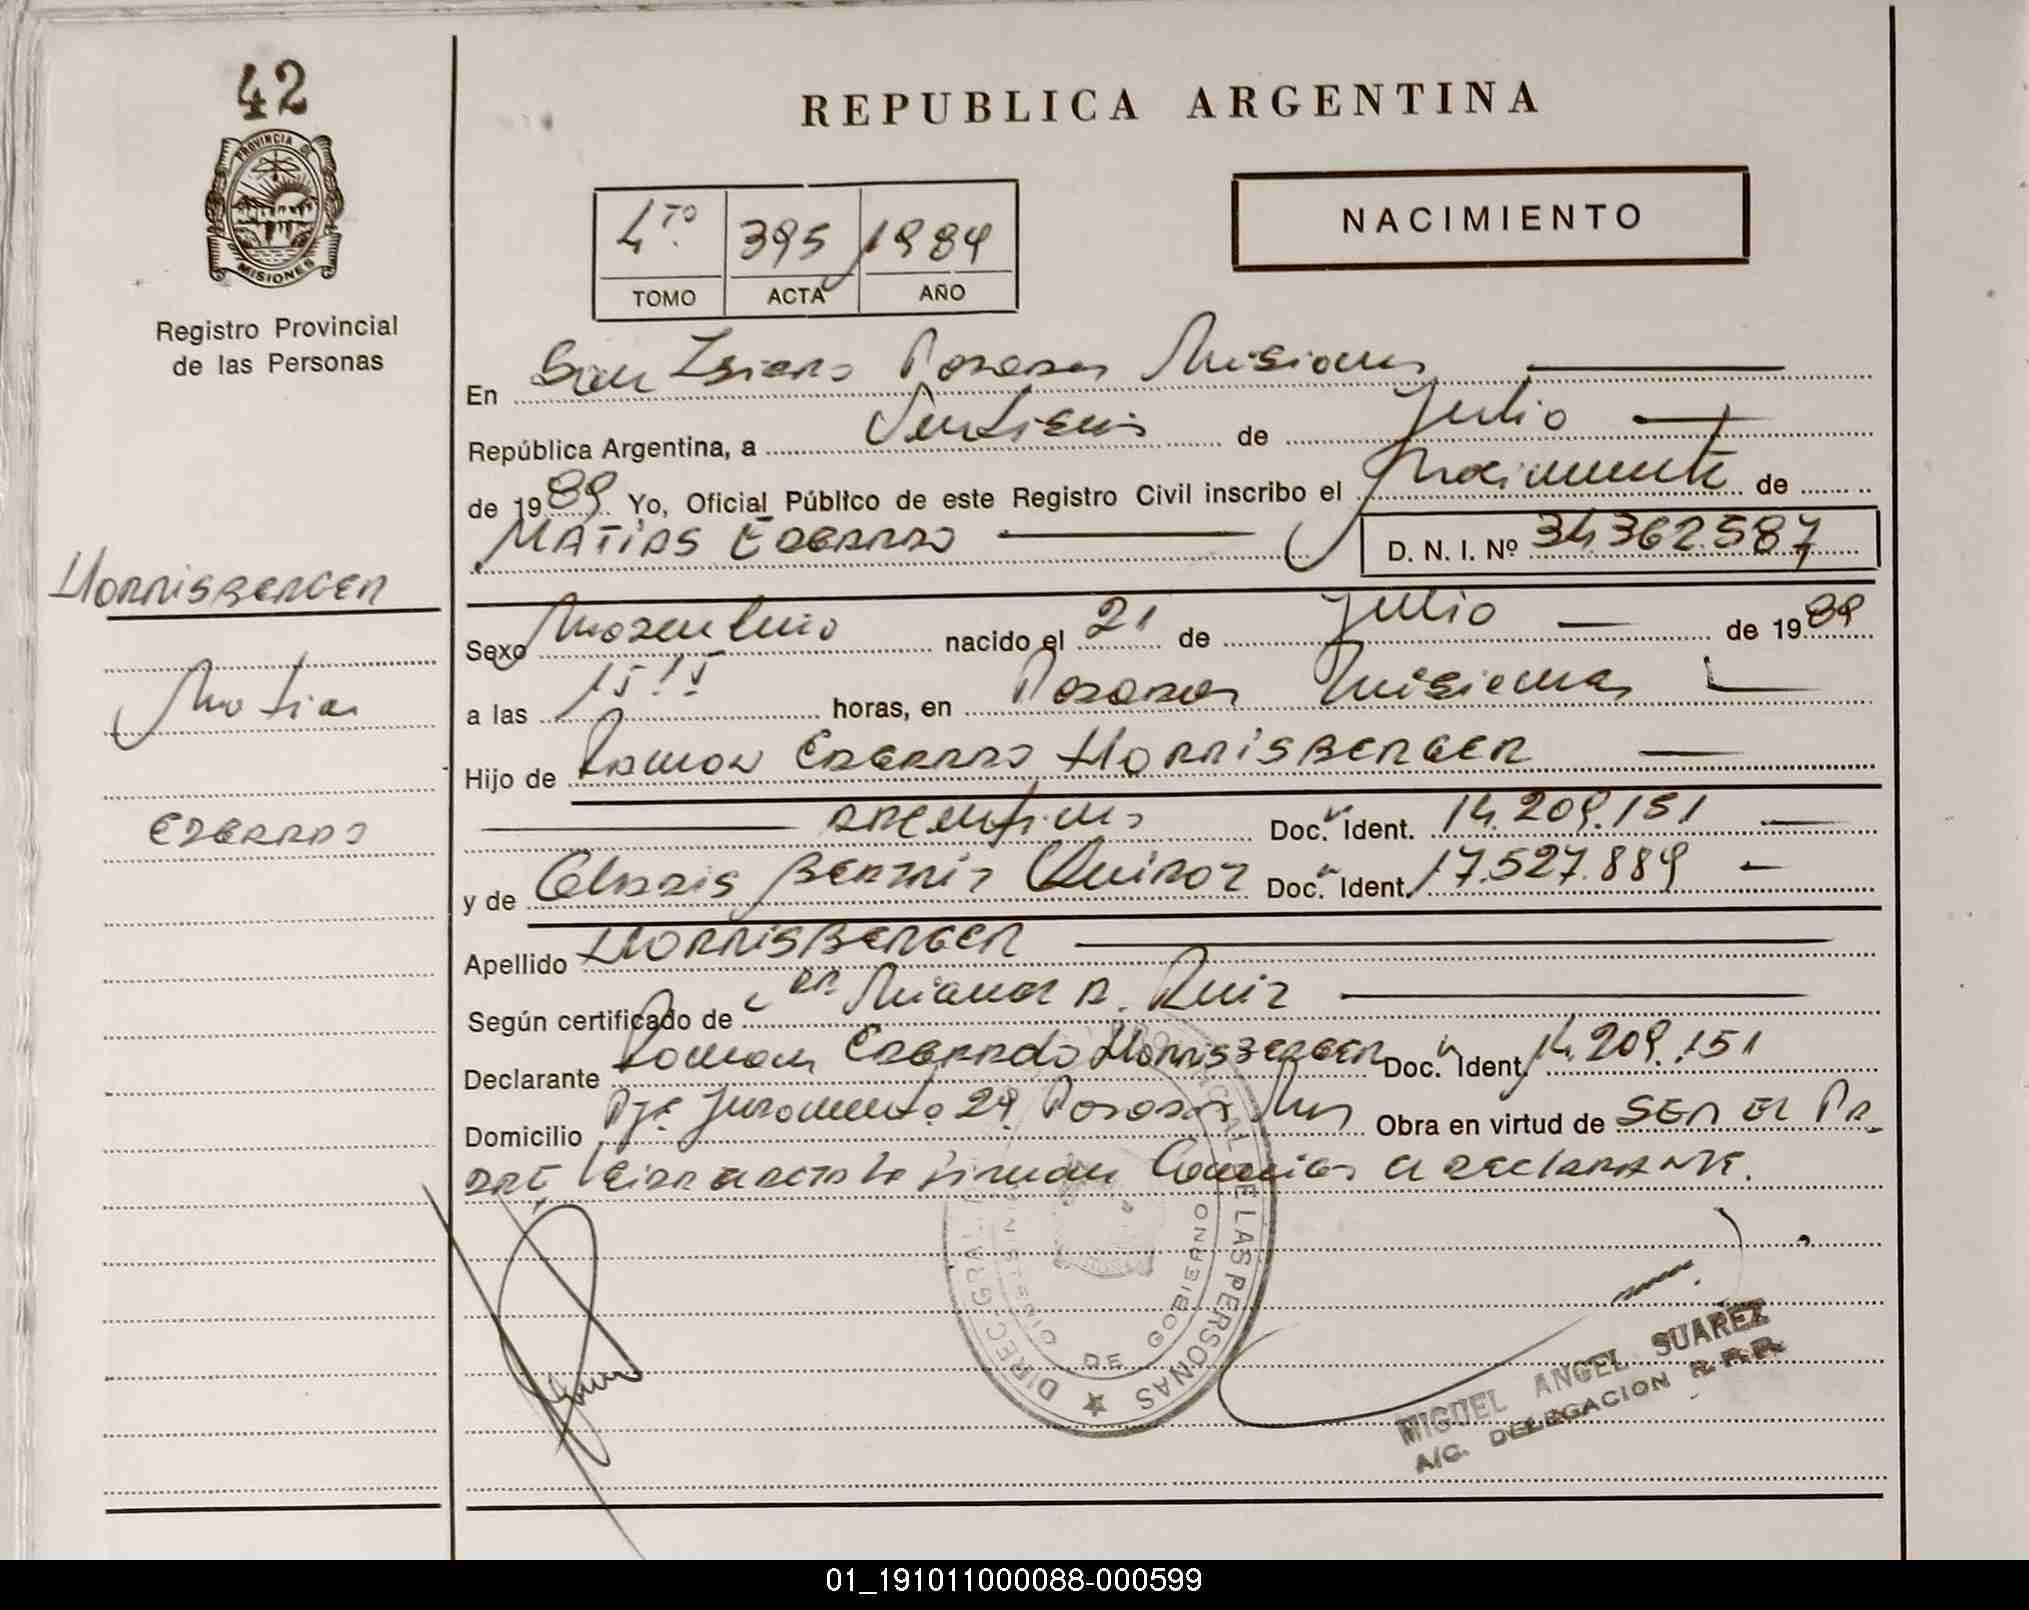 42
PROVINCIA DE
MISIONES
Registro Provincial
de las Personas
REPUBLICA ARGENTINA
NACIMIENTO
4to. 395 1989
TOMO ACTA AÑO
En San Isidro Posadas Misiones
República Argentina, a Veintiseis de Julio
de 1989 Yo, Oficial Público de este Registro Civil inscribo el Nacimiento de
MATIAS EDGARDO D. N. I. Nº 34.362.587
HORRISBERGER
Matias
EDGARDO
Sexo Masculino nacido el 21 de Julio de 1989
a las 15:15 horas, en Posadas Misiones
Hijo de Ramon EDGARDO HORRISBERGER
argentino Doc. Ident. 14.209.151
y de Gladis Beatriz Quiroz Doc. Ident. 17.527.889
Apellido HORRISBERGER
Según certificado de Ruiz
Declarante Ramon Edgardo Horrisberger Doc. Ident. 14.209.151
Domicilio Pje. Juramento 29 Posadas Mnes Obra en virtud de SER EL PA-
DRE firman el DECLARANTE.
DIRECC. GRAL. PROVINCIAL DE LAS PERSONAS
MINISTERIO DE GOBIERNO
MIGUEL ANGEL SUAREZ
A/C. DELEGACION R.P.P.
01_191011000088-000599